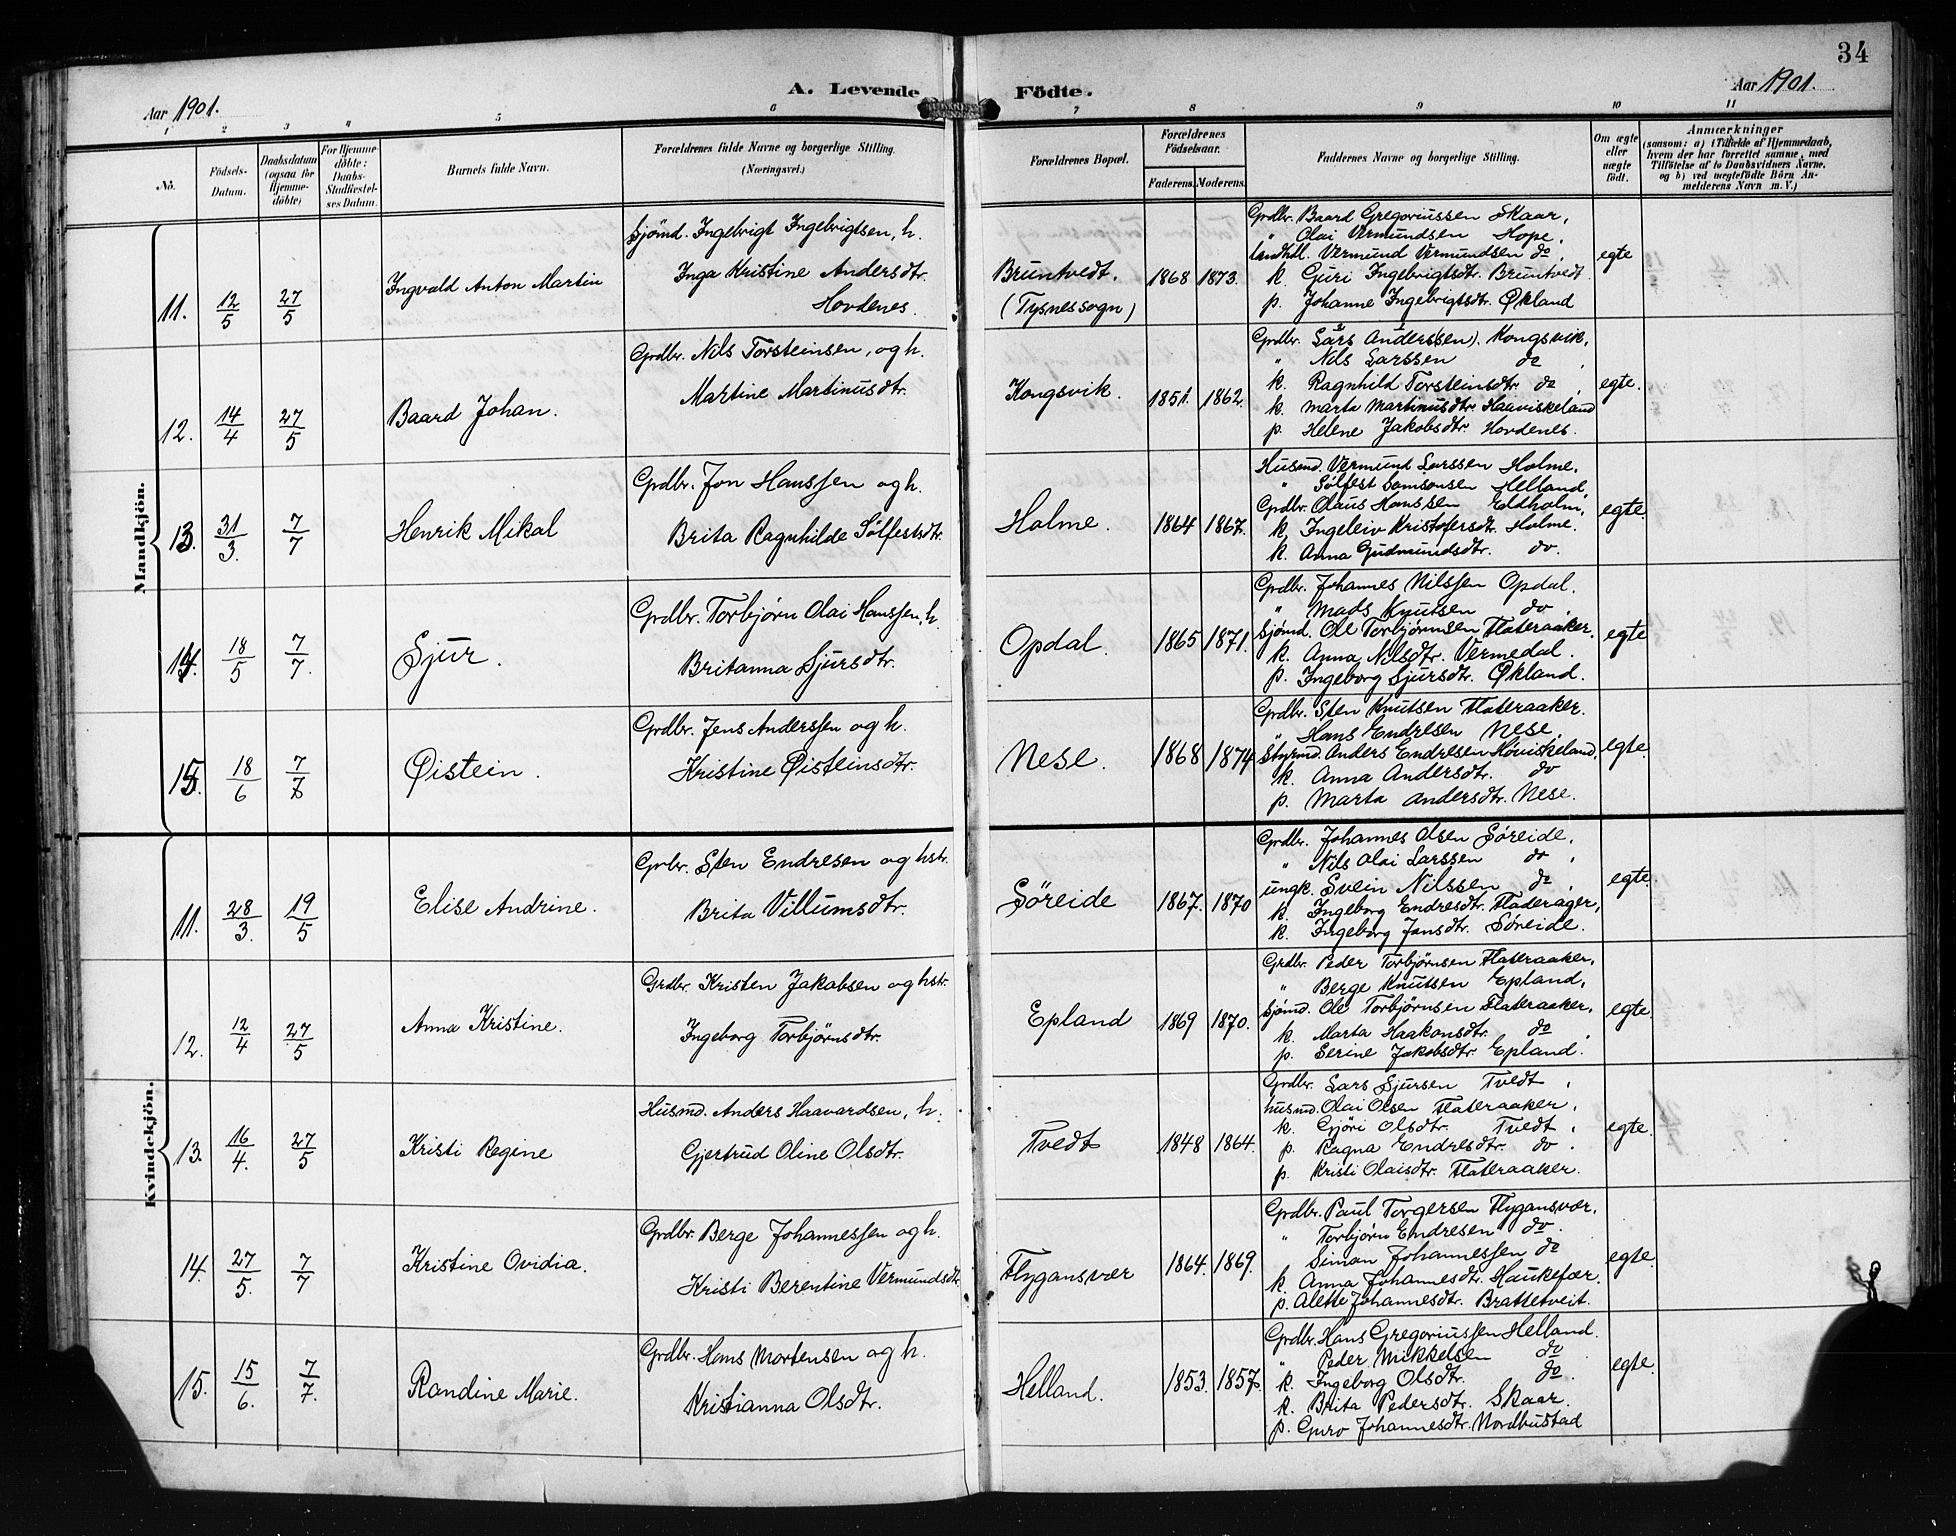 34
Aar 1901.
A. Levende Födte.
Aar 1901.
1 2 3 4 5 6 7 8 9 10 11
No.
Födsels-Datum.
Daabsdatum (ogsaa for Hjemme-döbte)
For Hjemme-döbte: Daabs-Stadfæstel-ses Datum.
Barnets fulde Navn.
Forældrenes fulde Navne og borgerlige Stilling. (Næringsvei.)
Forældrenes Bopæl.
Forældrenes Födselsaar.
Faderens. Moderens.
Faddernes Navne og borgerlige Stilling.
Om ægte eller uægte födt.
Anmærkninger
(saasom: a) i Tilfælde af Hjemmedaab, hvem der har forrettet samme, med Tilföielse af to Daabsvidners Navne, og b) ved uægtefödte Börn An-melderens Navn m. V.)
Mandkjön.
11. 12/5 27/5 Ingvald Anton Martin
Sjømd. Ingebrigt Ingebrigtsen, h.
Inga Kristine Andersdtr.
Hovdenes.
Bruntvedt.
(Tysnessogn)
1868 1873.
Grdbr. Baard Gregoriussen Skaar,
" Olai Vermundsen Hope,
Landhdl. Vermund Vermundsen do,
k. Guri Ingebrigtsdtr. Bruntvedt
p. Johanne Ingebrigtsdtr. Økland
egte
12. 14/4 27/5 Baard Johan.
Grdbr. Nils Torsteinsen, og h.
Martine Martinusdtr.
Kongsvik.
1851. 1862.
Grdbr. Lars Anderssen). Kongsvik,
" Nils Larssen do,
k. Ragnhild Torsteinsdtr. do,
k. Marta Martinusdtr. Haaviskeland
p. Helene Jakobsdtr. Hovdenes.
egte.
13. 31/3. 7/7 Henrik Mikal
Grdbr. Jon Hanssen og h.
Brita Ragnhilde Sølfestsdtr.
Holme.
1864 1867.
Husmd. Vermund Larssen Holme,
" Sølfest Samsonsen Helland,
Grdbr. Olaus Hanssen Eldholm,
k. Ingeleiv Kristofersdtr. Holme.
k. Anna Gudmundsdtr. do.
egte.
14. 18/5 7/7. Sjur.
Grdbr. Torbjørn Olai Hanssen, h.
Britanna Sjursdtr.
Opdal.
1865 1871.
Grdbr. Johannes Nilssen Opdal.
" Mads Knutsen do,
Sjømd. Ole Torbjørnsen Flateraaker.
k. Anna Nilsdtr. Vermedal.
p. Ingeborg Sjursdtr. Økland.
egte
15. 18/6 7/7 Øistein.
Grdbr. Jens Anderssen og h.
Kristine Øisteinsdtr.
Nese.
1868 1874
Grdbr. Sten Knutsen Flateraaker.
" Hans Endresen Nese,
Styrmd. Anders Endresen Høviskeland,
k. Anna Andersdtr. do
p. Marta Andersdtr. Nese.
egte.
Kvindekjön.
11. 28/3. 19/5 Elise Andrine.
Grbr. Sten Endresen og hstr.
Brita Villumsdtr.
Söreide
1867. 1870
Grdbr. Johannes Olsen Søreide,
" Nils Olai Larssen do,
ungk. Svein Nilssen do,
k. Ingeborg Endresdtr. Fladerager,
k. Ingeborg Jansdtr. Søreide.
egte.
12. 12/4 27/5 Anna Kristine.
Grdbr. Kristen Jakobsen og hstr.
Ingeborg Torbjørnsdtr.
Epland
1869 1870.
Grdbr. Peder Torbjørnsen Flateraaker,
" Berge Knutsen Epland,
Sjømd. Ole Torbjørnsen Flateraaker,
k. Marta Haakonsdtr. do,
p. Serine Jakobsdtr. Epland.
egte.
13. 16/4. 27/5 Kristi Regine
Husmd. Anders Haavardsen, h.
Gjertrud Oline Olsdtr.
Tvedt
1848 1864.
Grdbr. Lars Sjursen Tvedt,
husmd. Olai Olsen Flateraaker,
k. Gjøri Olsdtr. Tvedt,
p. Ragna Endresdtr. do.
p. Kristi Olaisdtr. Flateraaker.
egte.
14. 27/5. 7/7 Kristine Ovidia.
Grdbr. Berge Johannessen og h.
Kristi Berentine Vermundsdtr
Flygansvær
1864. 1869.
Grdbr. Paul Torgersen Flygansvær,
" Torbjørn Endresen do.
" Simon Johannessen do
k. Anna Johannesdtr. Haukefær.
p. Alette Johannesdtr. Brattetveit.
egte.
15. 15/6. 7/7. Randine Marie.
Grdbr. Hans Mortensen og h.
Kristianna Olsdtr.
Helland.
1853. 1857.
Grdbr. Hans Gregoriussen Helland.
" Peder Mikkelsen do
k. Ingeborg Olsdtr. do.
k. Brita Pedersdtr. Skaar.
p. Guro Johannesdtr. Nordhustad
egte.